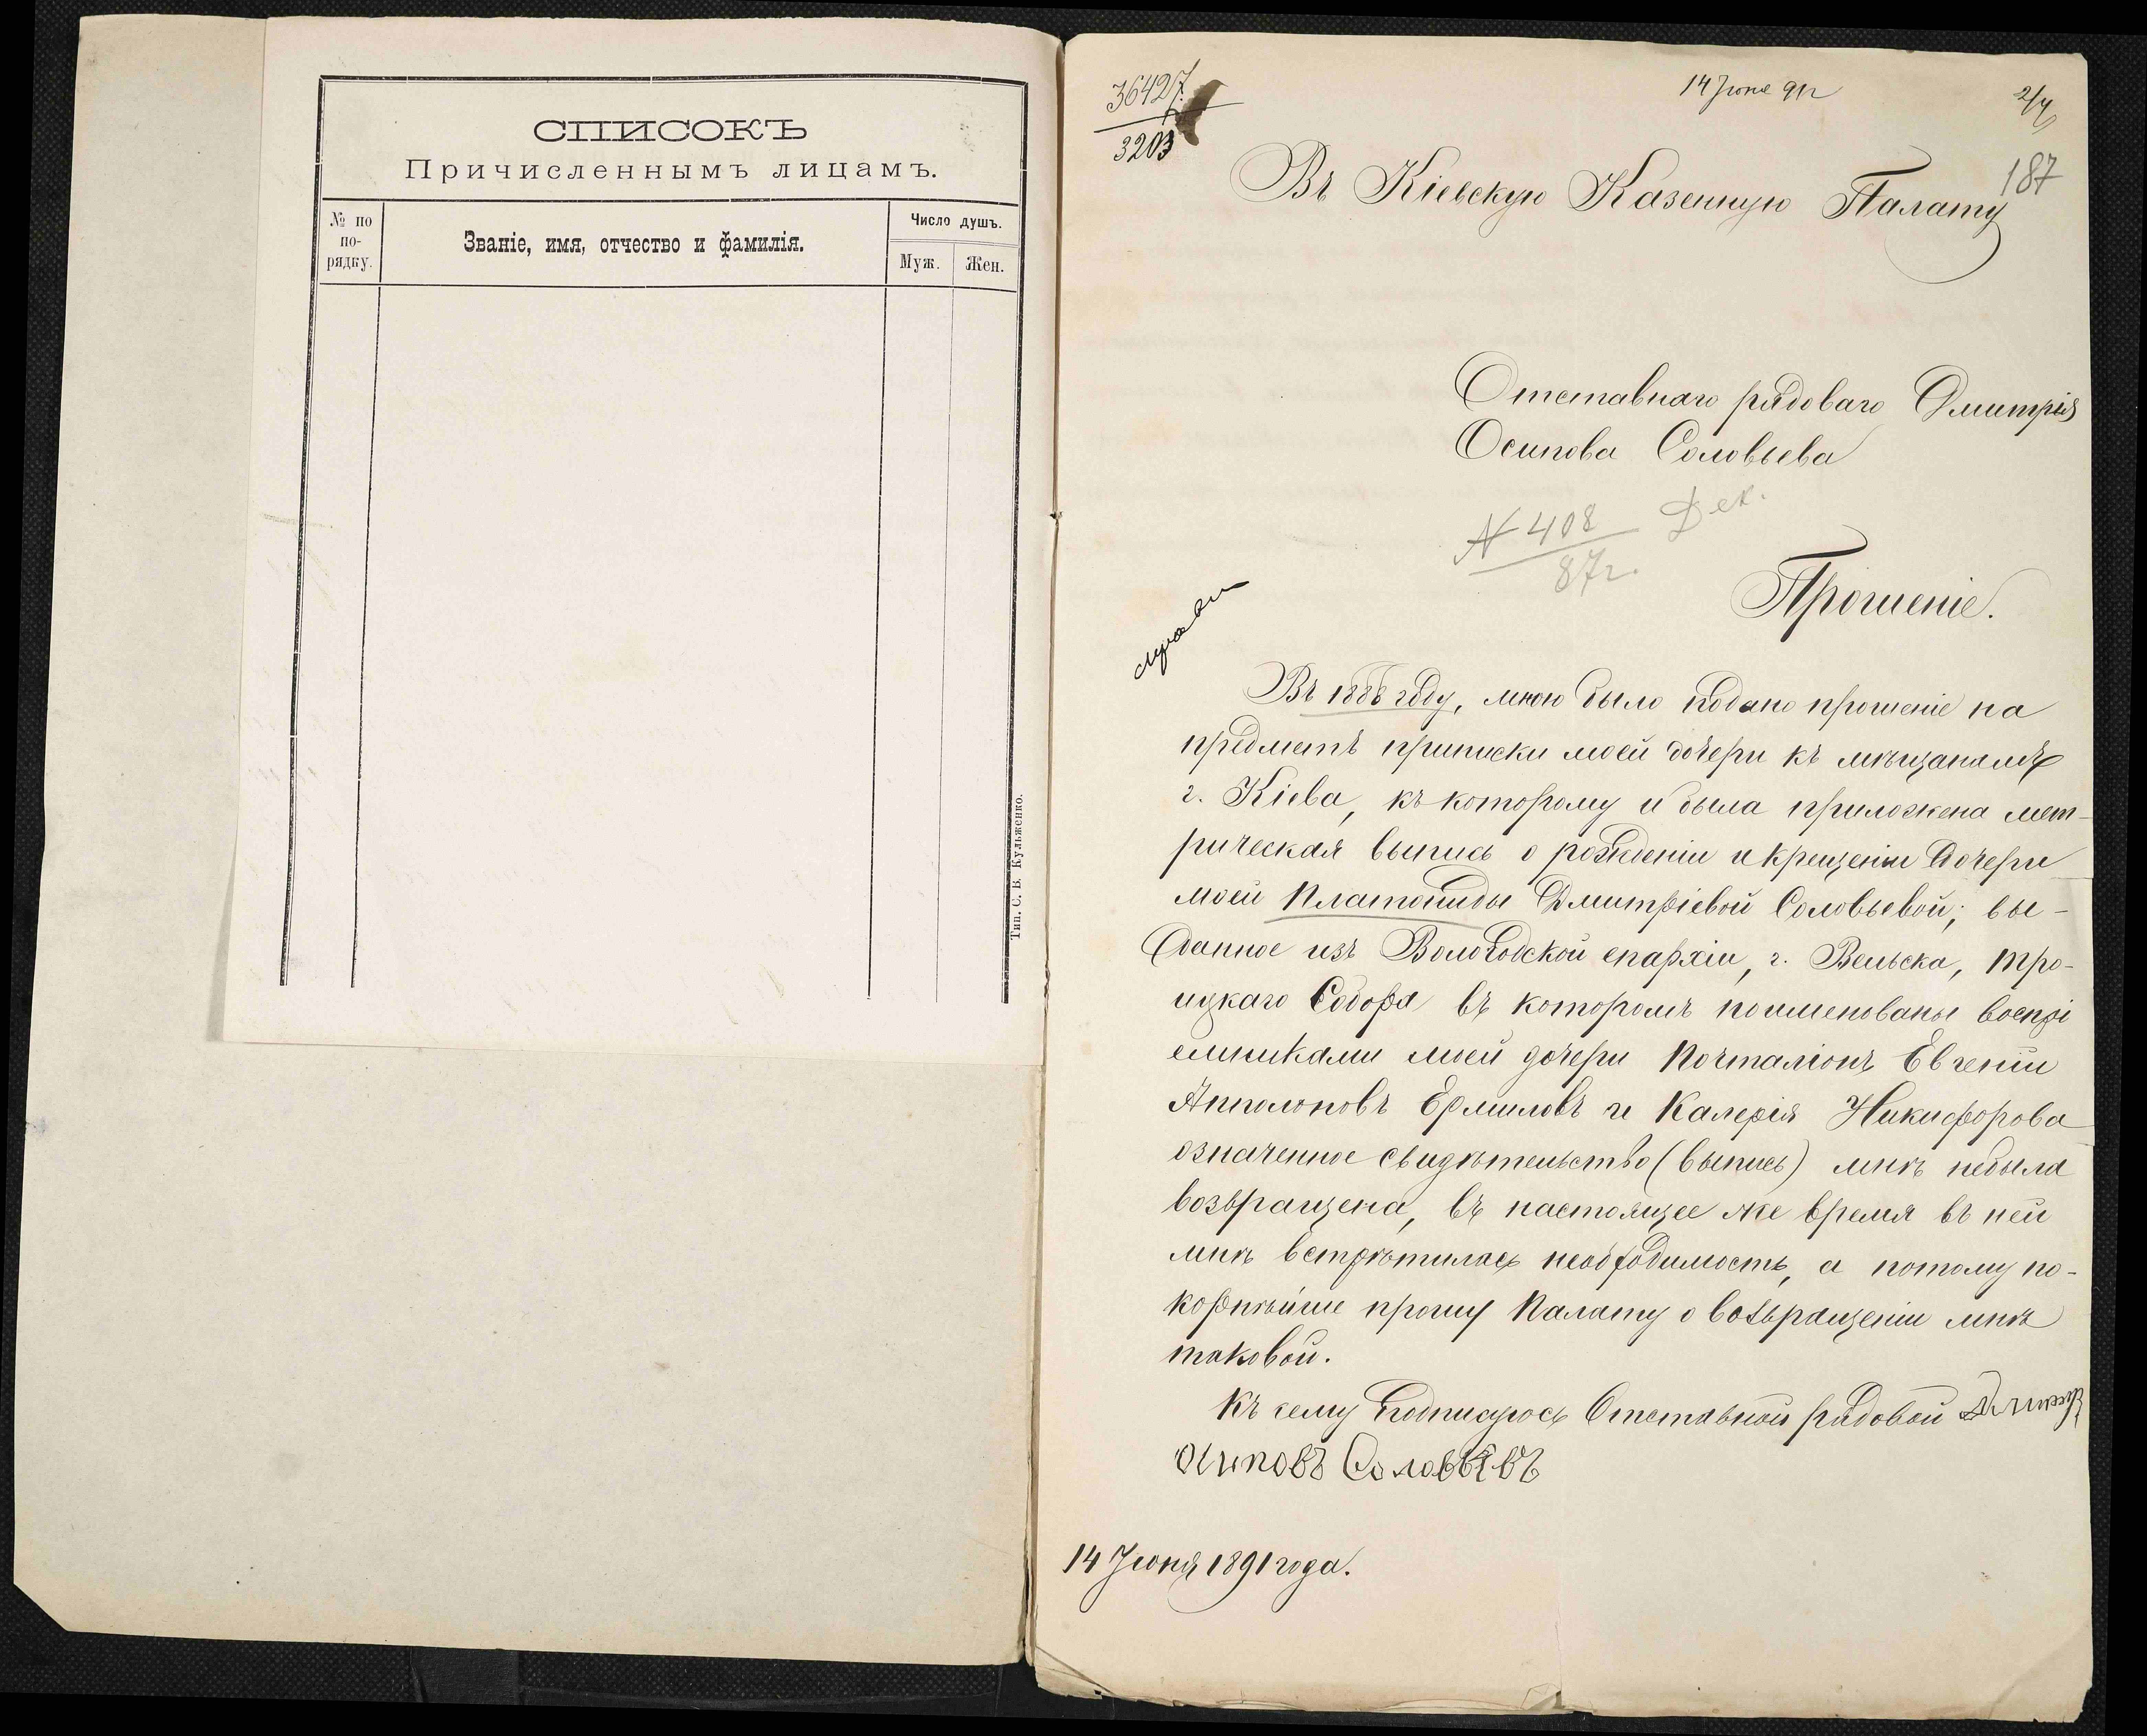 СПИСОКЪ
Причисленнымъ лицамъ.
№ по по-рядку.
Званіе, имя, отчество и фамилія.
Число душъ.
Муж.
Жен.
Тип. С. В. Кульженко.
36427
3203
14 Іюня 91 г
187
Въ Кіевскую Казенную Палату
Отставнаго рядоваго Дмитрія
Осипова Соловьева
N 408
87 г.
Прошеніе.
Въ 1886 году, мною было подано прошеніе на
предметъ приписки моей дочери къ мѣщанамъ
г. Кіева, къ которому и была приложена мет-
рическая выпись о рожденіи и крещеніи дочери
моей Платониды Дмитріевой Соловьевой; вы-
данное изъ Вологодской епархіи, г. Вельска, Тро-
ицкаго Собора въ которомъ поименованы воспрі
емниками моей дочери Почталіонъ Евгеній
Апполоновъ Ермиловъ и Калерія Никифорова
означенное свидѣтельство (выпись) мнѣ небыла
возвращена, въ настоящее же время въ ней
мнѣ встрѣтилась необходимость, а потому по-
корнѣйше прошу Палату о возвращеніи мнѣ
таковой.
Къ сему подписуюсь Отставной рядовой
осиповъ Соловьевъ
14 Іюня 1891 года.